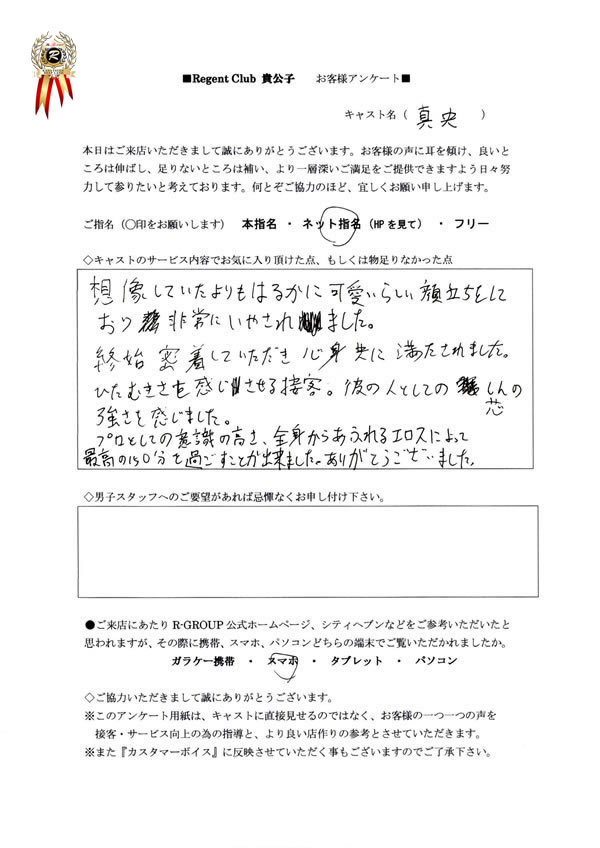 R
■Regent Club 貴公子　お客様アンケート■
キャスト名（ 真央 ）
本日はご来店いただきまして誠にありがとうございます。お客様の声に耳を傾け、良いと
ころは伸ばし、足りないところは補い、より一層深いご満足をご提供できますよう日々努
力して参りたいと考えております。何とぞご協力のほど、宜しくお願い申し上げます。
ご指名（〇印をお願いします）　本指名 ・ ネット指名（HPを見て） ・ フリー
◇キャストのサービス内容でお気に入り頂けた点、もしくは物足りなかった点
想像していたよりもはるかに可愛いらしい顔立ちをして
おり 非常にいやされ ました。
終始 密着していただき 心身共に満たされました。
ひたむきさを感じさせる接客。彼の人としての しんの
芯
強さを感じました。
プロとしての意識の高さ、全身からあふれるエロスによって
最高の150分を過ごすことが出来ました。ありがとうございました。
◇男子スタッフへのご要望があれば忌憚なくお申し付け下さい。
●ご来店にあたり R-GROUP 公式ホームページ、シティヘブンなどをご参考いただいたと
思われますが、その際に携帯、スマホ、パソコンどちらの端末でご覧いただかれましたか。
ガラケー携帯 ・ スマホ ・ タブレット ・ パソコン
◇ご協力いただきまして誠にありがとうございます。
※このアンケート用紙は、キャストに直接見せるのではなく、お客様の一つ一つの声を
接客・サービス向上の為の指導と、より良い店作りの参考とさせていただきます。
※また『カスタマーボイス』に反映させていただく事もございますのでご了承下さい。